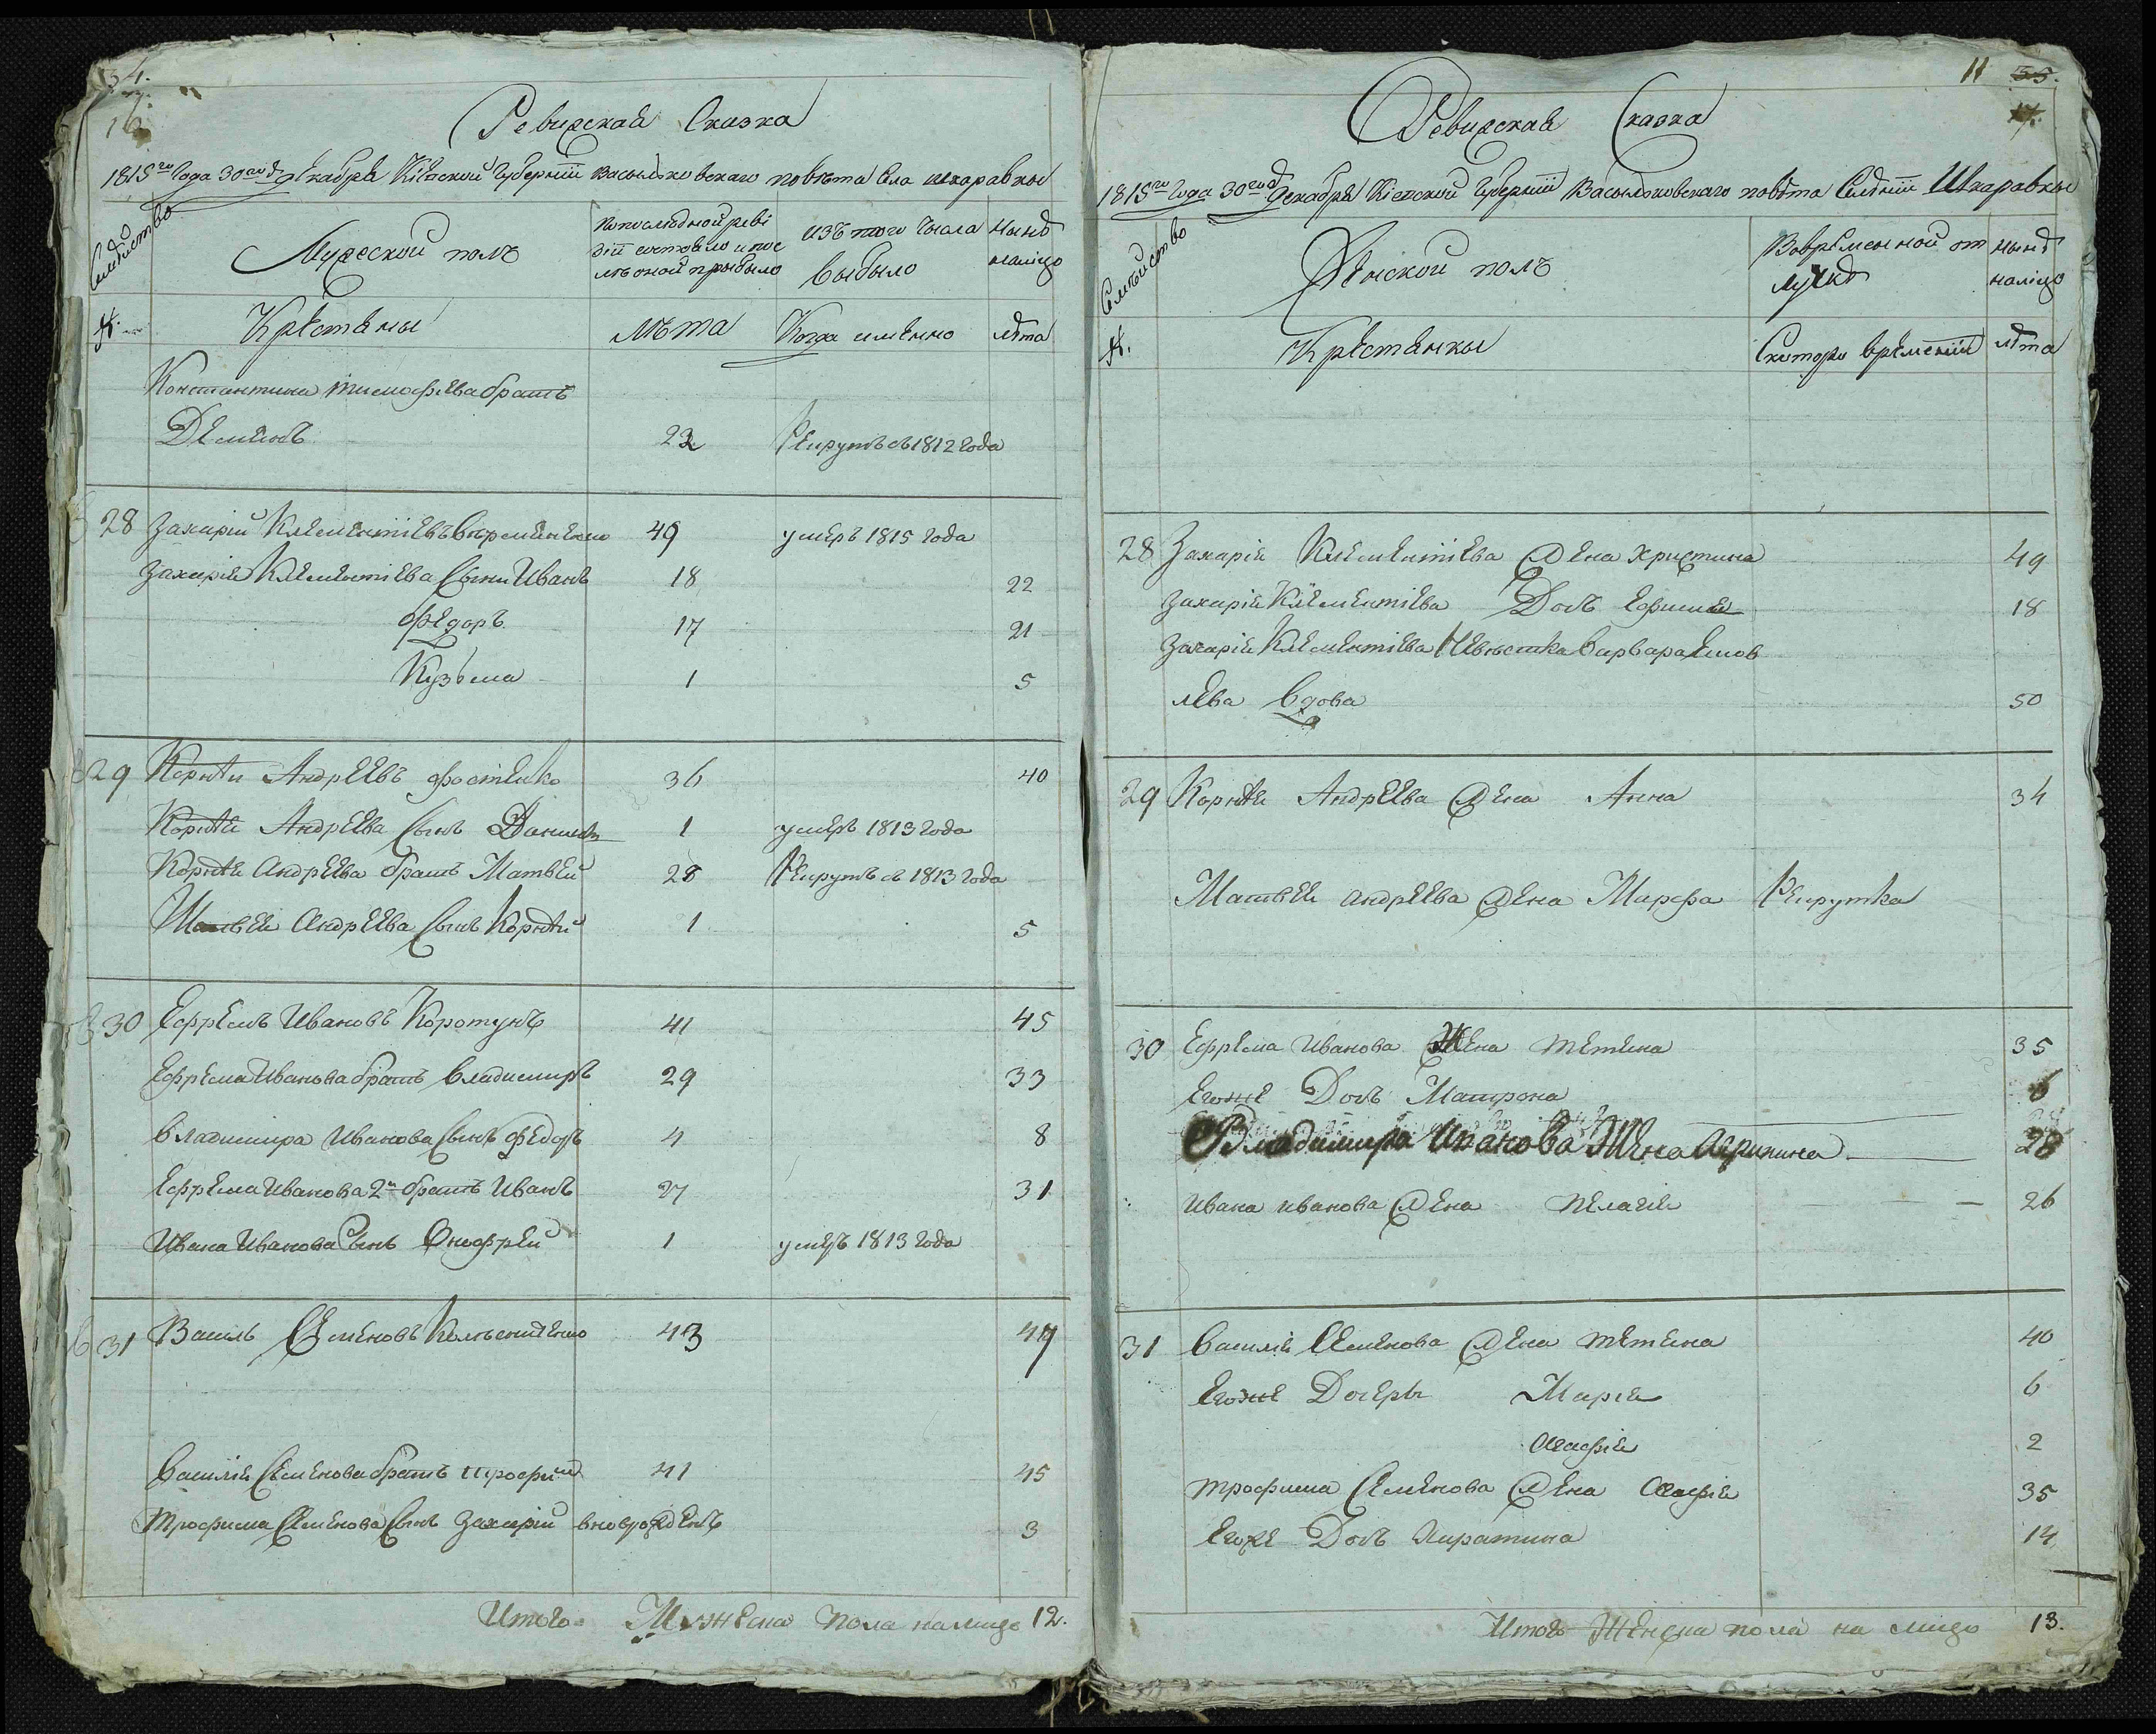 34.
16
Ревизская Сказка
1815го Года 30го д Декабря Кіевской Губерніи Васильковскаго повѣта Села шкаравки
Семѣйство
Мужеской полъ
По послѣдной реві
зіи состояло и пос
лѣ оной прибыло
изъ того числа
выбыло
нынѣ
наліцо
№.
Крестяны
Лѣта
Когда именно
лѣта
Константина тимофѣева братъ
Дементъ 22 Рекрутъ съ 1812 Года
28 Захарій Клементіевъ 49 умеръ 1815 Года
Захарія Клементіева Сыни Иванъ 18 22
Федоръ 17 21
Кузьма 1 5
29 Корнѣй Андреевъ фостенко 36 40
Корнѣя Андреева Сынъ Данило 1 умеръ 1813 Года
Корнѣя Андреева братъ Матвей 28 Рекрутъ съ 1813 Года
Матвея Андреева Сынъ Корнѣй 1 5
30 Ефремъ Ивановъ Коротунъ 41 45
Ефрема Иванова братъ Владимиръ 29 33
Владимира Иванова Сынъ Федоръ 4 8
Ефрема Иванова 2й братъ Иванъ 27 31
Ивана Иванова Сынъ Онофрей 1 умеръ 1813 Года
31 Василь Семеновъ 43 47
Василія Семенова братъ трофим 41 45
Трофима Семенова Сынъ Захарій вновъ рожденъ 3
Итого Мужеска пола налицо 12.
11 55.
17.
Ревизская Сказка
1815го Года 30го д Декабря Кіевской Губерніи Васильковскаго повѣта Селѣнія Шкаравки
Семѣйство
Женской полъ
Вовременной от
лучкѣ
нынѣ
наліцо
№.
Крестянки
Скоторо времени
лѣта
28 Захарія Клементіева жена Христина 49
Захарія Клементіева Дочь Ефимия 18
Захарія Клементіева Невѣстка Варвара Яков
лева Вдова 50
29 Корнѣя Андреева жена Анна 34
Матвея Андреева жена Марфа Рекрутка
30 Ефрема Иванова Жена тетяна 35
Егоже Дочь Матрона 6
Владимира Иванова Жена Агрипина 28
Ивана иванова жена пелагія 26
31 Василія Семенова жена тетяна 40
Егоже Дочеры Марія 6
Агафія 2
трофима Семенова жена Агафія 35
Егоже Дочь 14
Итого Женска пола на лицо 13.